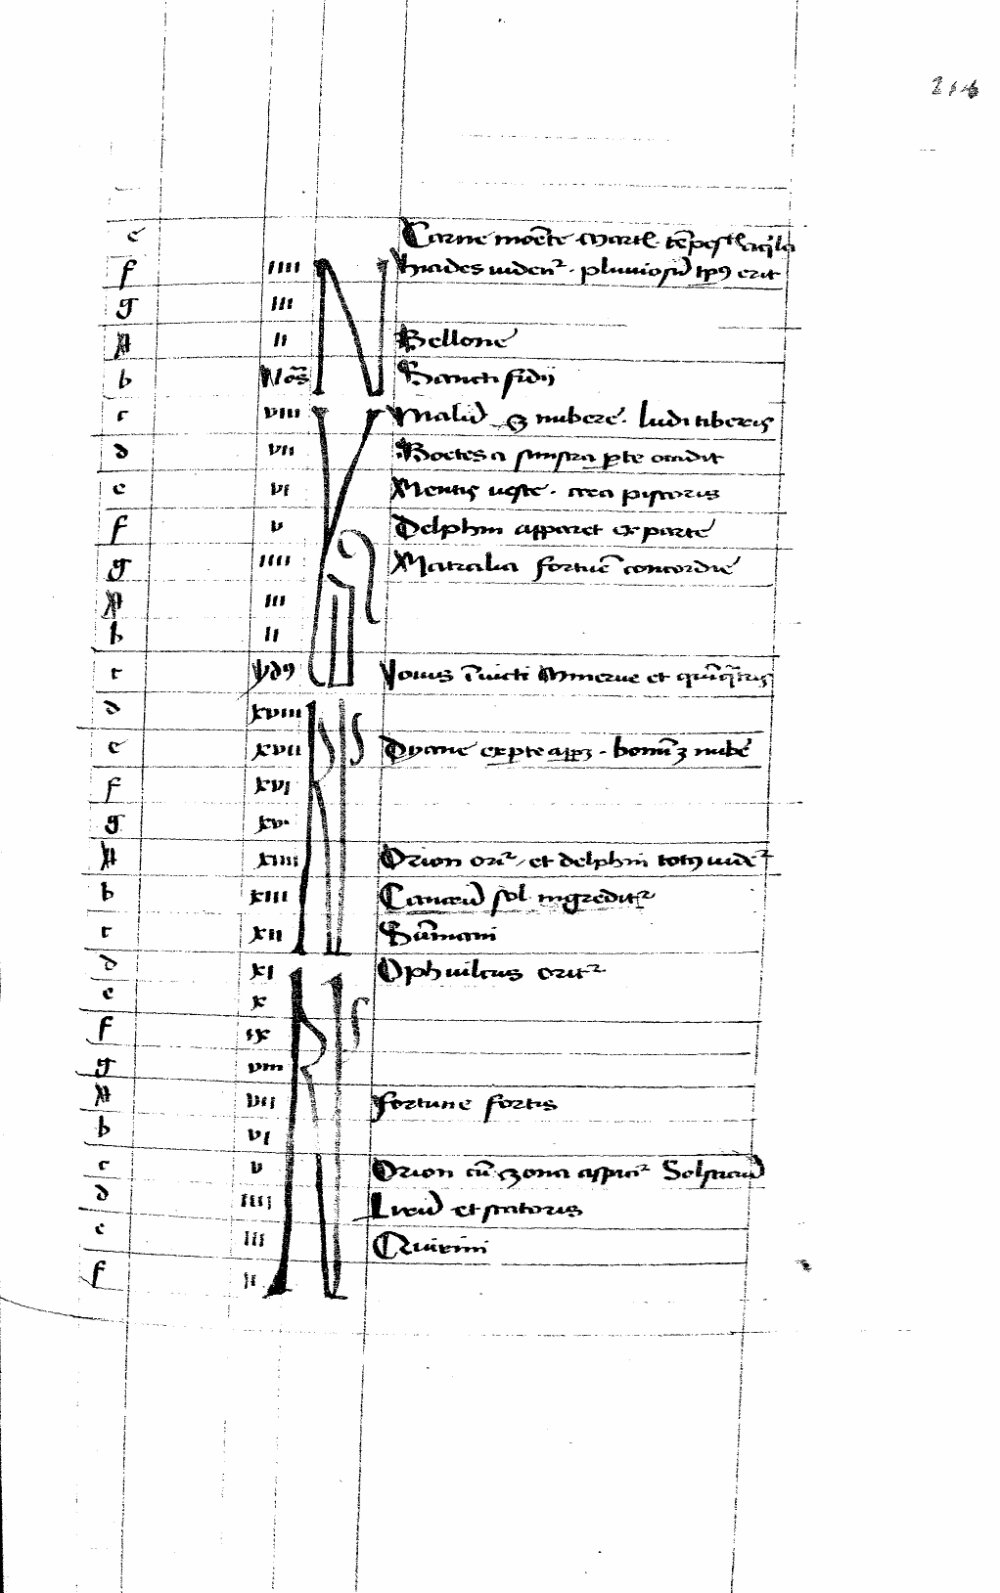 214
e Carne moe͂te marti tẽpest aq̃la
f iiii hiades uiden̄t᷑ . pluuiosũ tp̃9 erit
g iii
A ii Bellone
b Nōs Sancti fidij
c viii Malũ ꝫ nubere . ludi tiberis
d vii Boetes a sinistra ꝑte occidit
e vi Mentis ueste . area pistoris
f v Delphin apparet ex parte
g iiii Matralia fortune concordie
A iii
b ii
c yd9 Iouis īuicti Minerue et quīq̃tris
d xviii
e xvii Dyane ex ꝑte app3 . bonū 3 nube
f xvi
g xv
A xiiii Orion ori᷑ et delphin tot9 uide᷑
b xiii Cancrũ sol ingredit᷑
c xii Sūmani
d xi Ophiulcus orit᷑
e x
f ix
g viii
A vii fortune fortis
b vi
c v Orion cū zona aspici᷑ Solsticiũ
d iiii Lareũ et statoris
e iii Quirini
f ii